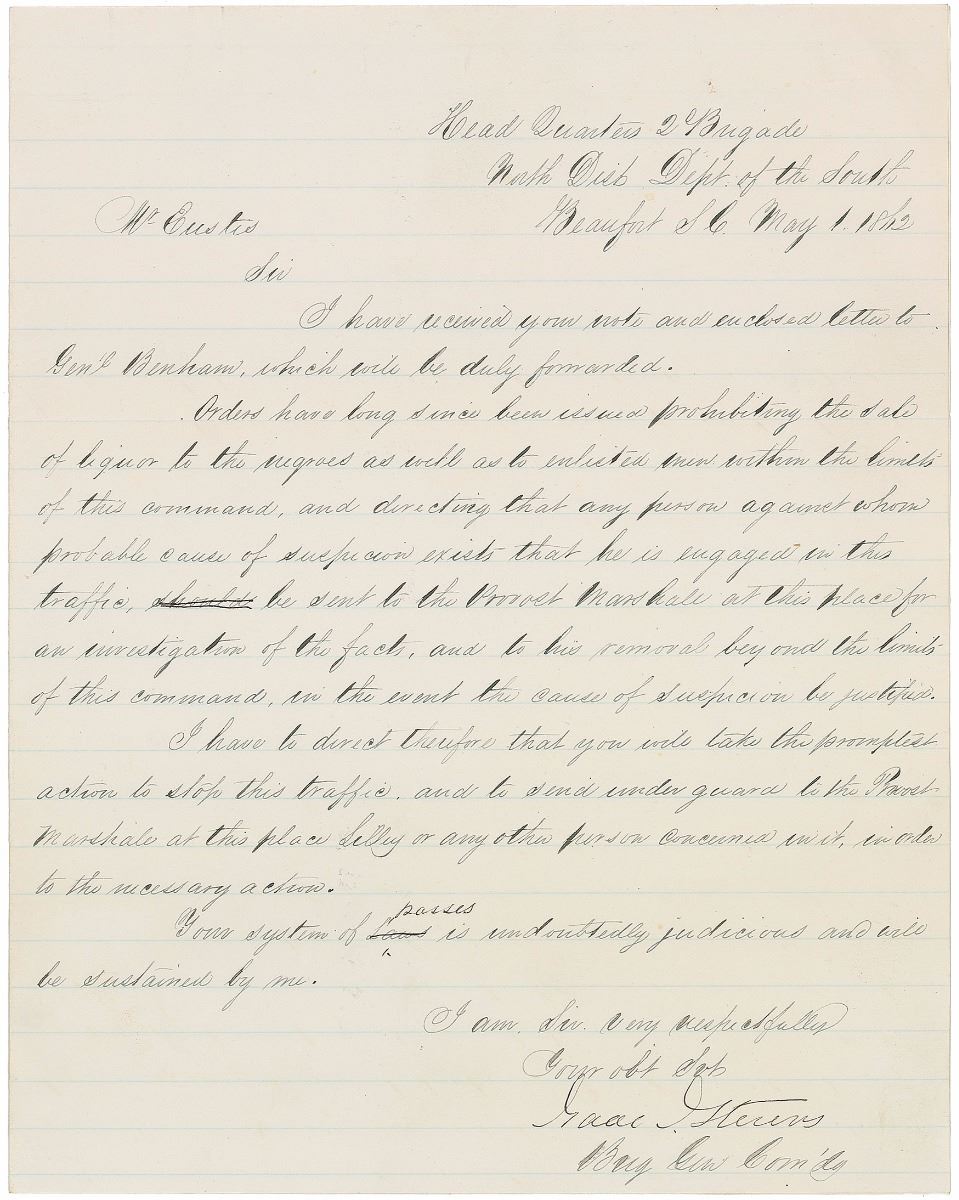 Head Quarters 2d Brigade
North Dist. Dept. of the South
Beaufort S C. May 1. 1862
Mr Eustis
Sir
I have received your note and enclosed letter to
Genl Benham, which will be duly forwarded.
Orders have long since been issued prohibiting the sale
of liquor to the negroes as well as to enlisted men within the limits
of this command, and directing that any person against whom
probable cause of suspicion exists that he is engaged in this
traffic, should be sent to the Provost Marshale at this place for
an investigation of the facts, and to his removal beyond the limits
of this command, in the event the cause of suspicion be justified.
I have to direct therefore that you will take the promptest
action to stop this traffic. and to send under guard to the Provost
Marshale at this place Lilley or any other person concerned in it, in order
to the necessary action.
passes
Your system of Laws is undoubtedly judicious and will
be sustained by me.
I am, Sir. very respectfully
Your obt Svt
Isaac I. Stevens
Brig Gen Com'dg